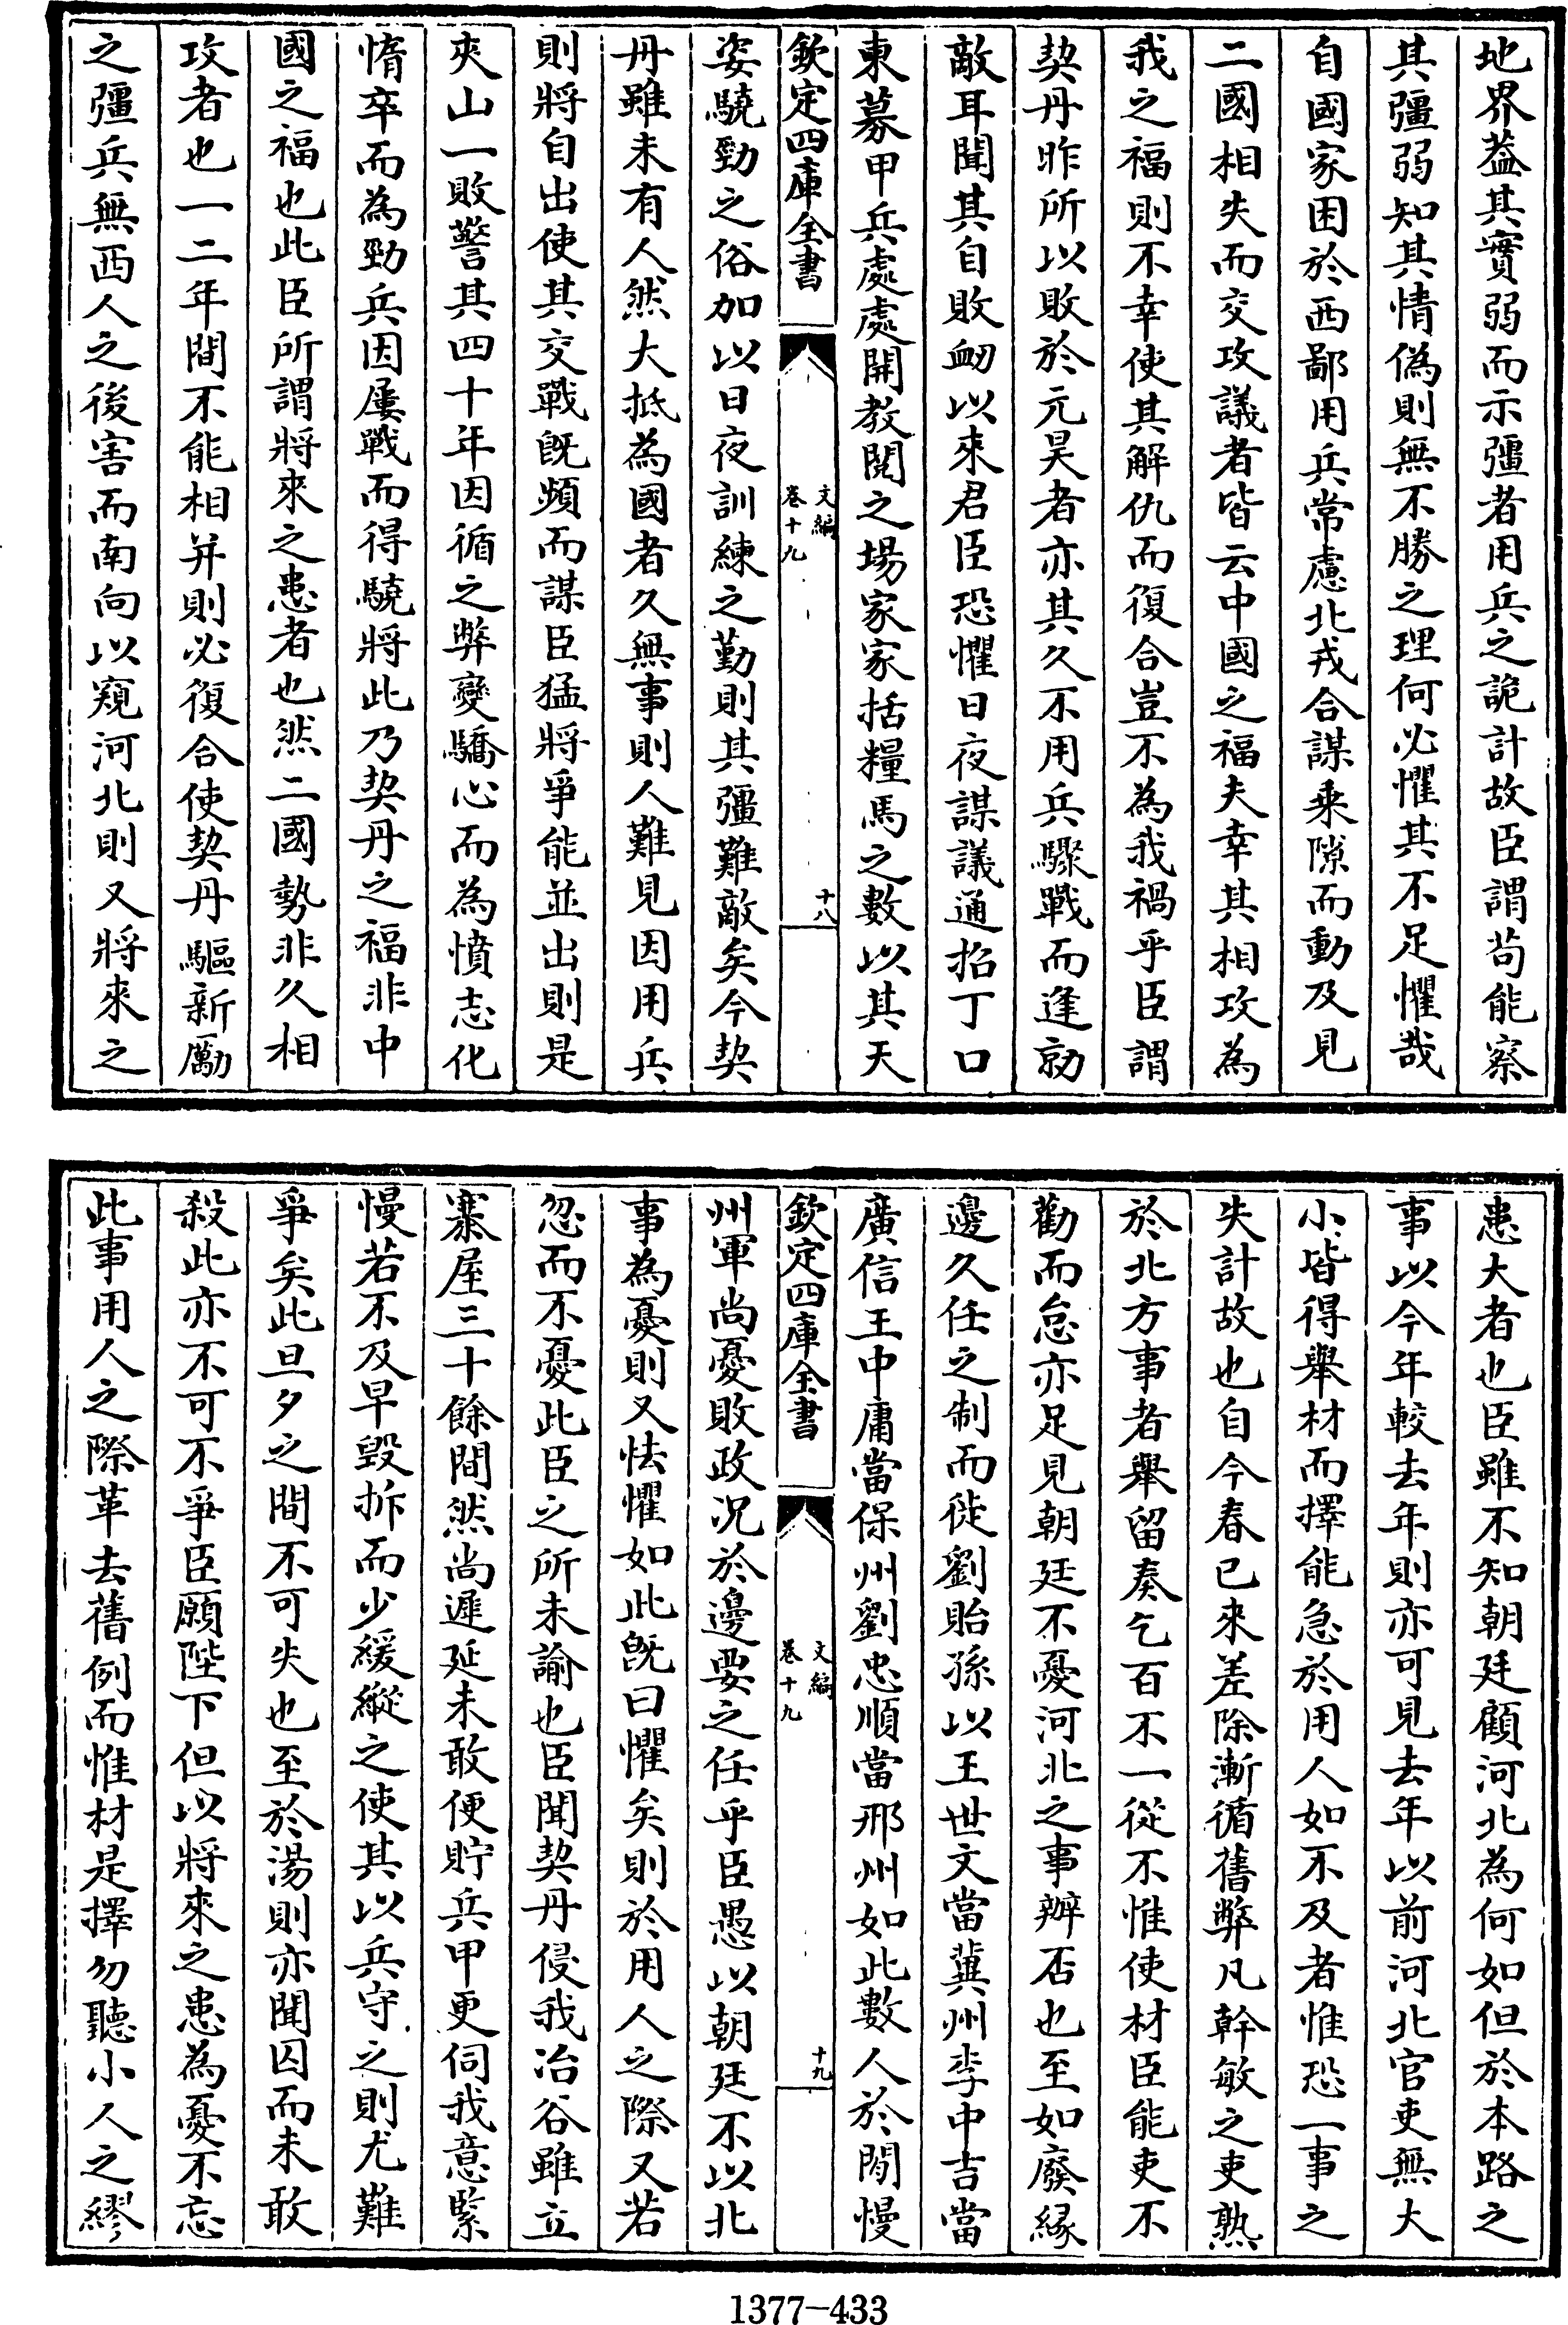 地界葢其實弱而示彊者用兵之詭計故臣謂苟能察
其彊弱知其情偽則無不勝之理何必懼其不足懼哉
自國家困於西鄙用兵常慮北戎合謀乘隙而動及見
二國相失而交攻議者皆云中國之福夫幸其相攻為
我之福則不幸使其解仇而復合豈不為我禍乎臣謂
契丹昨所以敗於元昊者亦其久不用兵驟戰而逢勍
敵耳聞其自敗衂以來君臣恐懼日夜謀議通招丁口
東募甲兵處處開教閱之場家家括糧馬之數以其天
欽定四庫全書
文編
卷十九
十八
姿驍勁之俗加以日夜訓練之勤則其彊難敵矣今契
丹雖未有人然大抵為國者久無事則人難見因用兵
則將自出使其交戰既頻而謀臣猛將爭能並出則是
夾山一敗警其四十年因循之弊變驕心而為憤志化
惰卒而為勁兵因屢戰而得驍將此乃契丹之福非中
國之福也此臣所謂將來之患者也然二國勢非久相
攻者也一二年間不能相并則必復合使契丹驅新勵
之彊兵無西人之後害而南向以窺河北則又將來之
患大者也臣雖不知朝廷顧河北為何如但於本路之
事以今年較去年則亦可見去年以前河北官吏無大
小皆得舉材而擇能急於用人如不及者惟恐一事之
失計故也自今春已來差除漸循舊弊凡幹敏之吏熟
於北方事者舉留奏乞百不一從不惟使材臣能吏不
勸而怠亦足見朝廷不憂河北之事辦否也至如廢緣
邊久任之制而徙劉貽孫以王世文當冀州李中吉當
廣信王中庸當保州劉忠順當邢州如此數人於閒慢
欽定四庫全書
文編
卷十九
十九
州軍尚憂敗政况於邊要之任乎臣愚以朝廷不以北
事為憂則又怯懼如此既曰懼矣則於用人之際又若
忽而不憂此臣之所未諭也臣聞契丹侵我冶谷雖立
寨屋三十餘間然尚遲延未敢便貯兵甲更伺我意緊
慢若不及早毀拆而少緩縱之使其以兵守之則尤難
爭矣此旦夕之間不可失也至於湯則亦聞囚而未敢
殺此亦不可不爭臣願陛下但以將來之患為憂不忘
此事用人之際革去舊例而惟材是擇勿聽小人之繆
1377—433